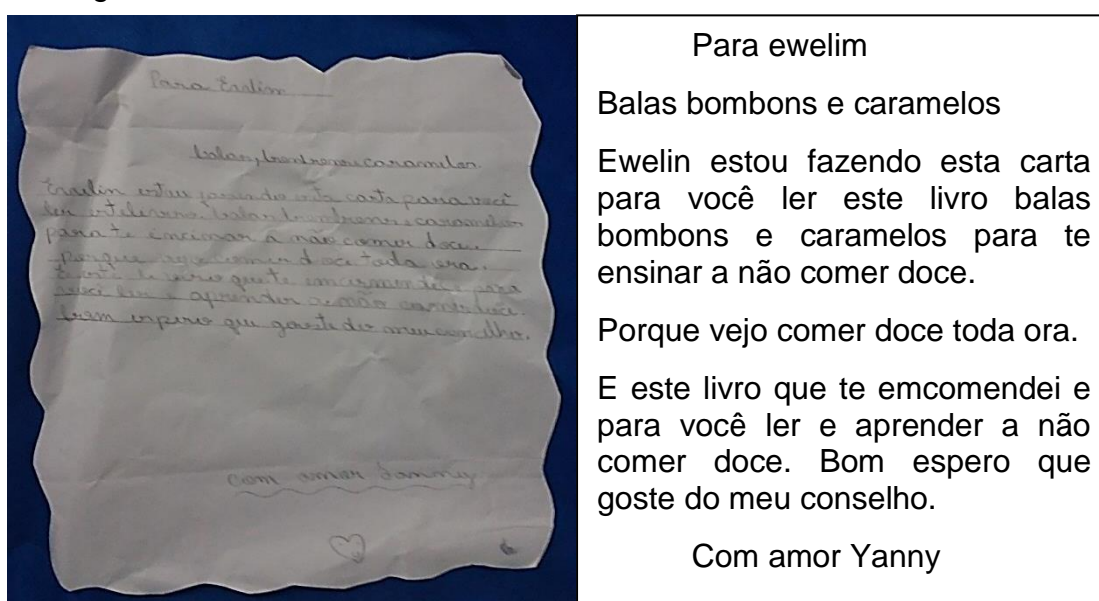 Para Ewelin
balas, bombons e caramelos.
Ewelin estou fazendo esta carta para você
ler este livro balas bombons e caramelos
para te encinar a não comer doce.
porque vejo comer doce toda ora.
E este livro que te emcomendei e para
você ler e aprender a não comer doce.
bom espero que goste do meu conselho.
com amor Yanny
Para ewelim
Balas bombons e caramelos
Ewelin estou fazendo esta carta
para você ler este livro balas
bombons e caramelos para te
ensinar a não comer doce.
Porque vejo comer doce toda ora.
E este livro que te emcomendei e
para você ler e aprender a não
comer doce. Bom espero que
goste do meu conselho.
Com amor Yanny